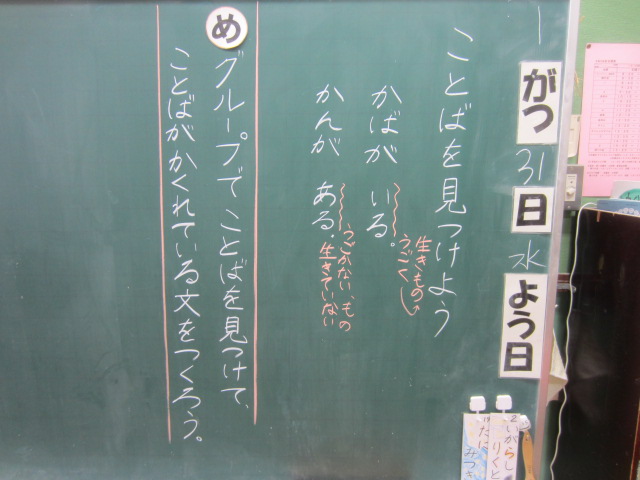 1がつ31日水よう日
ことばを見つけよう
かばが いる。
生きもの
うごくし
かんが ある。
うごかない、もの
生きていない
め
グループで ことばを見つけて、
ことばがかくれている文をつくろう。
いがらし
りくと
みつき